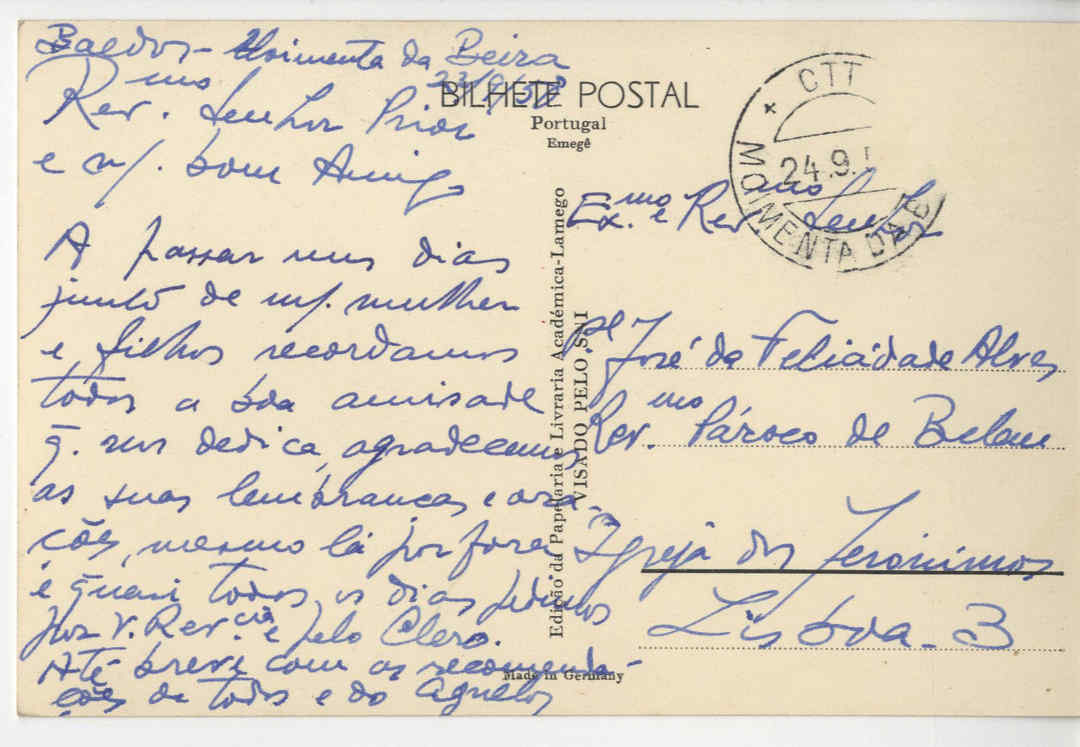 Baldos - Moimenta da Beira
23/9/58
Rev.mo Senhor Prior
e m/. bom Amigo
A passar uns dias
junto de m/. mulher
e filhos recordamos
todos a boa amisade
q. nos dedica, agradecemos
as suas lembranças e ora-
ções, mesmo lá por fora
e quasi todos os dias pedimos
por V. Rev.cia e pelo Clero.
Até breve com as recomenda-
ções de todos e do Agnelos
BILHETE POSTAL
Portugal
Emegê
CTT
24.9.
MOIMENTA DA B
Edição da Papelaria e Livraria Académica-Lamego
VISADO PELO SNI
Made in Germany
Ex.mo e Rev.mo Senhor
P.e José da Felicidade Alves
Rev.mo Pároco de Belem
Igreja dos Jeronimos
Lisboa - 3